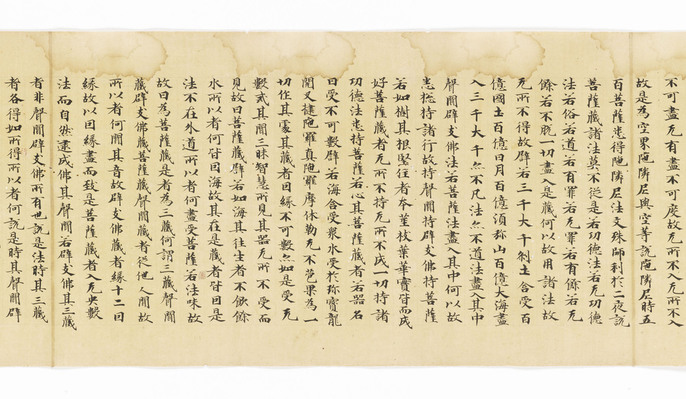 不可盡无有盡不可度故无所入无所不入
故是為空累陁隣尼與空等說陁隣尼時五
百菩薩悉得陁隣尼法文殊師利於二夜說
菩薩藏諸法莫不從是若功德法若无功德
法若俗若道若有罪若无罪若有餘若无
餘若不脫一切盡入是藏何以故用諸法故
无所不得故辟若三千大千刹土含受百
億國土百億日月百億須弥山百億大海盡
入三千大千亦不凡法亦不道法盡入其中
聲聞辟支佛法若菩薩法盡入其中何以故
悉揔持諸行故持聲聞持辟支佛持菩薩
若如樹其根堅住者本莖枝葉華實皆而成
好菩薩藏者无所不持无所不成一切持諸
功德法悉持菩薩若心其菩薩藏者若器名
曰受不可數辟若海含受衆水受於珎寳龍
閱叉揵陁羅真陁羅摩休勒无不苞裹為一
切作其處其藏者因緣不可數亦如是受无
數戒其聞三昧智慧所見其器无所不受而
見故曰菩薩藏辟若如海其往生者不飲餘
水所以者何皆因海故其在是藏者皆因是
法不在外道所以者何盡受菩薩若法味故
故曰為菩薩藏是者為三藏何謂三藏聲聞
藏辟支佛藏菩薩藏聲聞藏者從他人聞故
所以者何聞其音故辟支佛藏者緣十二因
緣故以因緣盡而致是菩薩藏者入无央數
法而自然逮成佛其聲聞若辟支佛其三藏
者非聲聞辟支佛所有也說是法時其三藏
者各得如所得所以者何說是時其聲聞辟